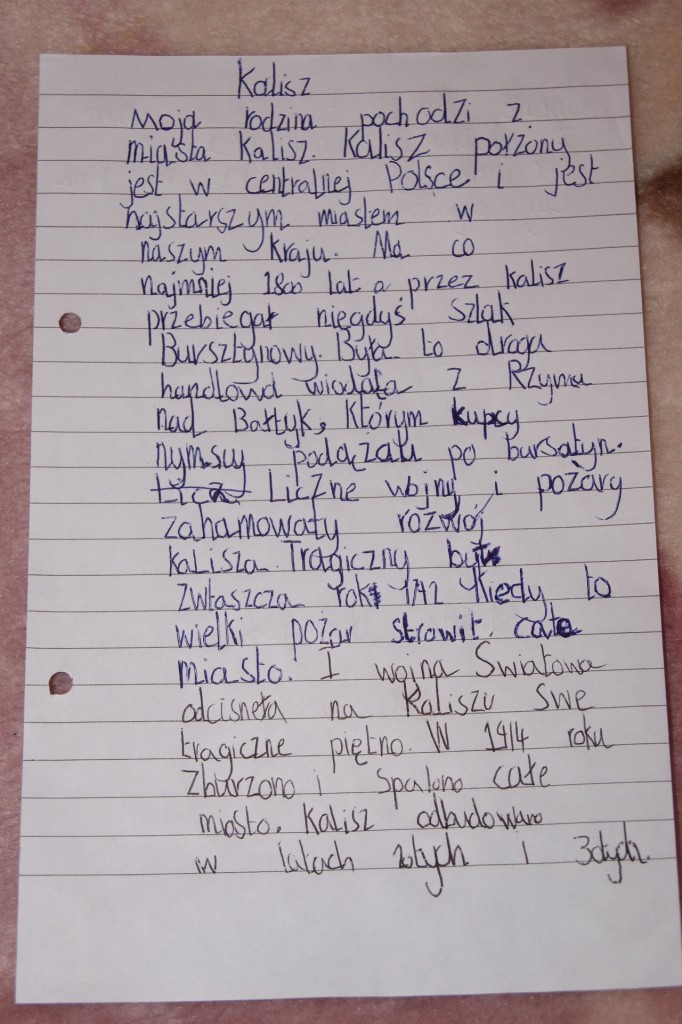 Kalisz
Moja rodzina pochodzi z
miasta Kalisz. Kalisz połżony
jest w centralnej Polsce i jest
najstarszym miastem w
naszym kraju. Ma co
najmniej 1800 lat a przez Kalisz
przebiegał niegdyś szlak
Bursztynowy. Była to droga
handlowa wiodąła z Rzymu
nad Bałtyk, którym kupcy
rzymscy podążali po bursztyn.
Licz Liczne wojny i pożary
zahamowały rozwój
Kalisza. Tragiczny był
zwłaszcza rok kiedy to
wielki pożar strawił całe
miasto. I wojna Światowa
odcisneła na Kaliszu swe
tragiczne piętno. W 1914 roku
Zburzono i spalono całe
miasto. Kalisz odbudowano
w latach 20tych i 30tych.